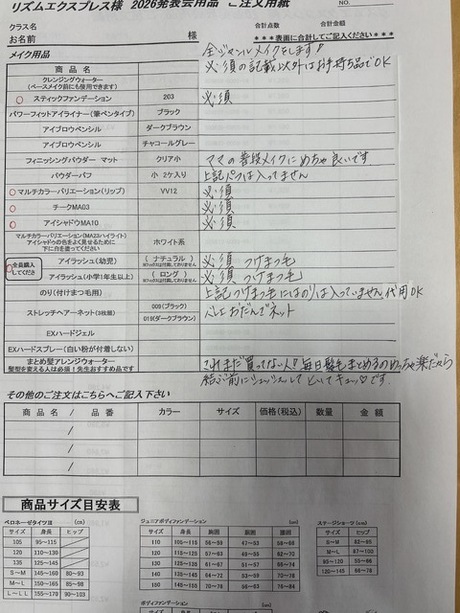 リズムエクスプレス様 2026発表会用品 ご注文用紙
NO.
クラス名
お名前 様
合計点数 合計金額
＊＊＊表面に合計してご記入ください＊＊＊
メイク用品
全ジャンルメイクをします!
必須の記載以外はお手持ち品でOK
商品名
クレンジングウォーター
(ベースメイク前にも使用できます)
スティックファンデーション 203 必須
パワーフィットアイライナー(筆ペンタイプ) ブラック
アイブロウペンシル ダークブラウン
アイブロウペンシル チャコールグレー
フィニッシングパウダー マット クリア小 ママの普段メイクにめちゃ良いです
パウダーパフ 小 2ケ入り 上記パフは入ってません
マルチカラーバリエーション(リップ) VV12 必須
チークMA03 必須
アイシャドウMA10 必須
マルチカラーバリエーション(MA22ハイライト)
アイシャドウの色をよく見せるために
下に白を塗ってください
ホワイト系
全員購入
してください
アイラッシュ(幼児) (ナチュラル) 必須 つけまつ毛
アイラッシュ(小学1年生以上) (ロング) 必須 つけまつ毛
のり(付けまつ毛用) 上記つけまつ毛にはのりは入っていません 代用OK
ストレッチヘアーネット(3枚組) 009(ブラック)
019(ダークブラウン)
バレエおだんごネット
EXハードジェル
EXハードスプレー(白い粉が付着しない)
まとめ髪アレンジウォーター
髪型を変える人は必須!先生おすすめ品です
これまだ買ってない人!毎日髪毛まとめるのめっちゃ楽だから
その他のご注文はこちらへご記入下さい
商品名 / 品番 カラー サイズ 価格(税込) 数量 金額
/
/
/
商品サイズ目安表
ペロネーゼタイツⅡ (cm)
身長 ヒップ
105 95〜115
120 110〜130
135 125〜145
S〜M 145〜160 80〜93
M〜L 150〜165 85〜98
L〜LL 155〜170 90〜103
ジュニアボディファンデーション (cm)
身長 胸囲 胴囲 腰囲
ステージショーツ (cm)
ヒップ
S〜M 82〜95
M〜L 87〜100